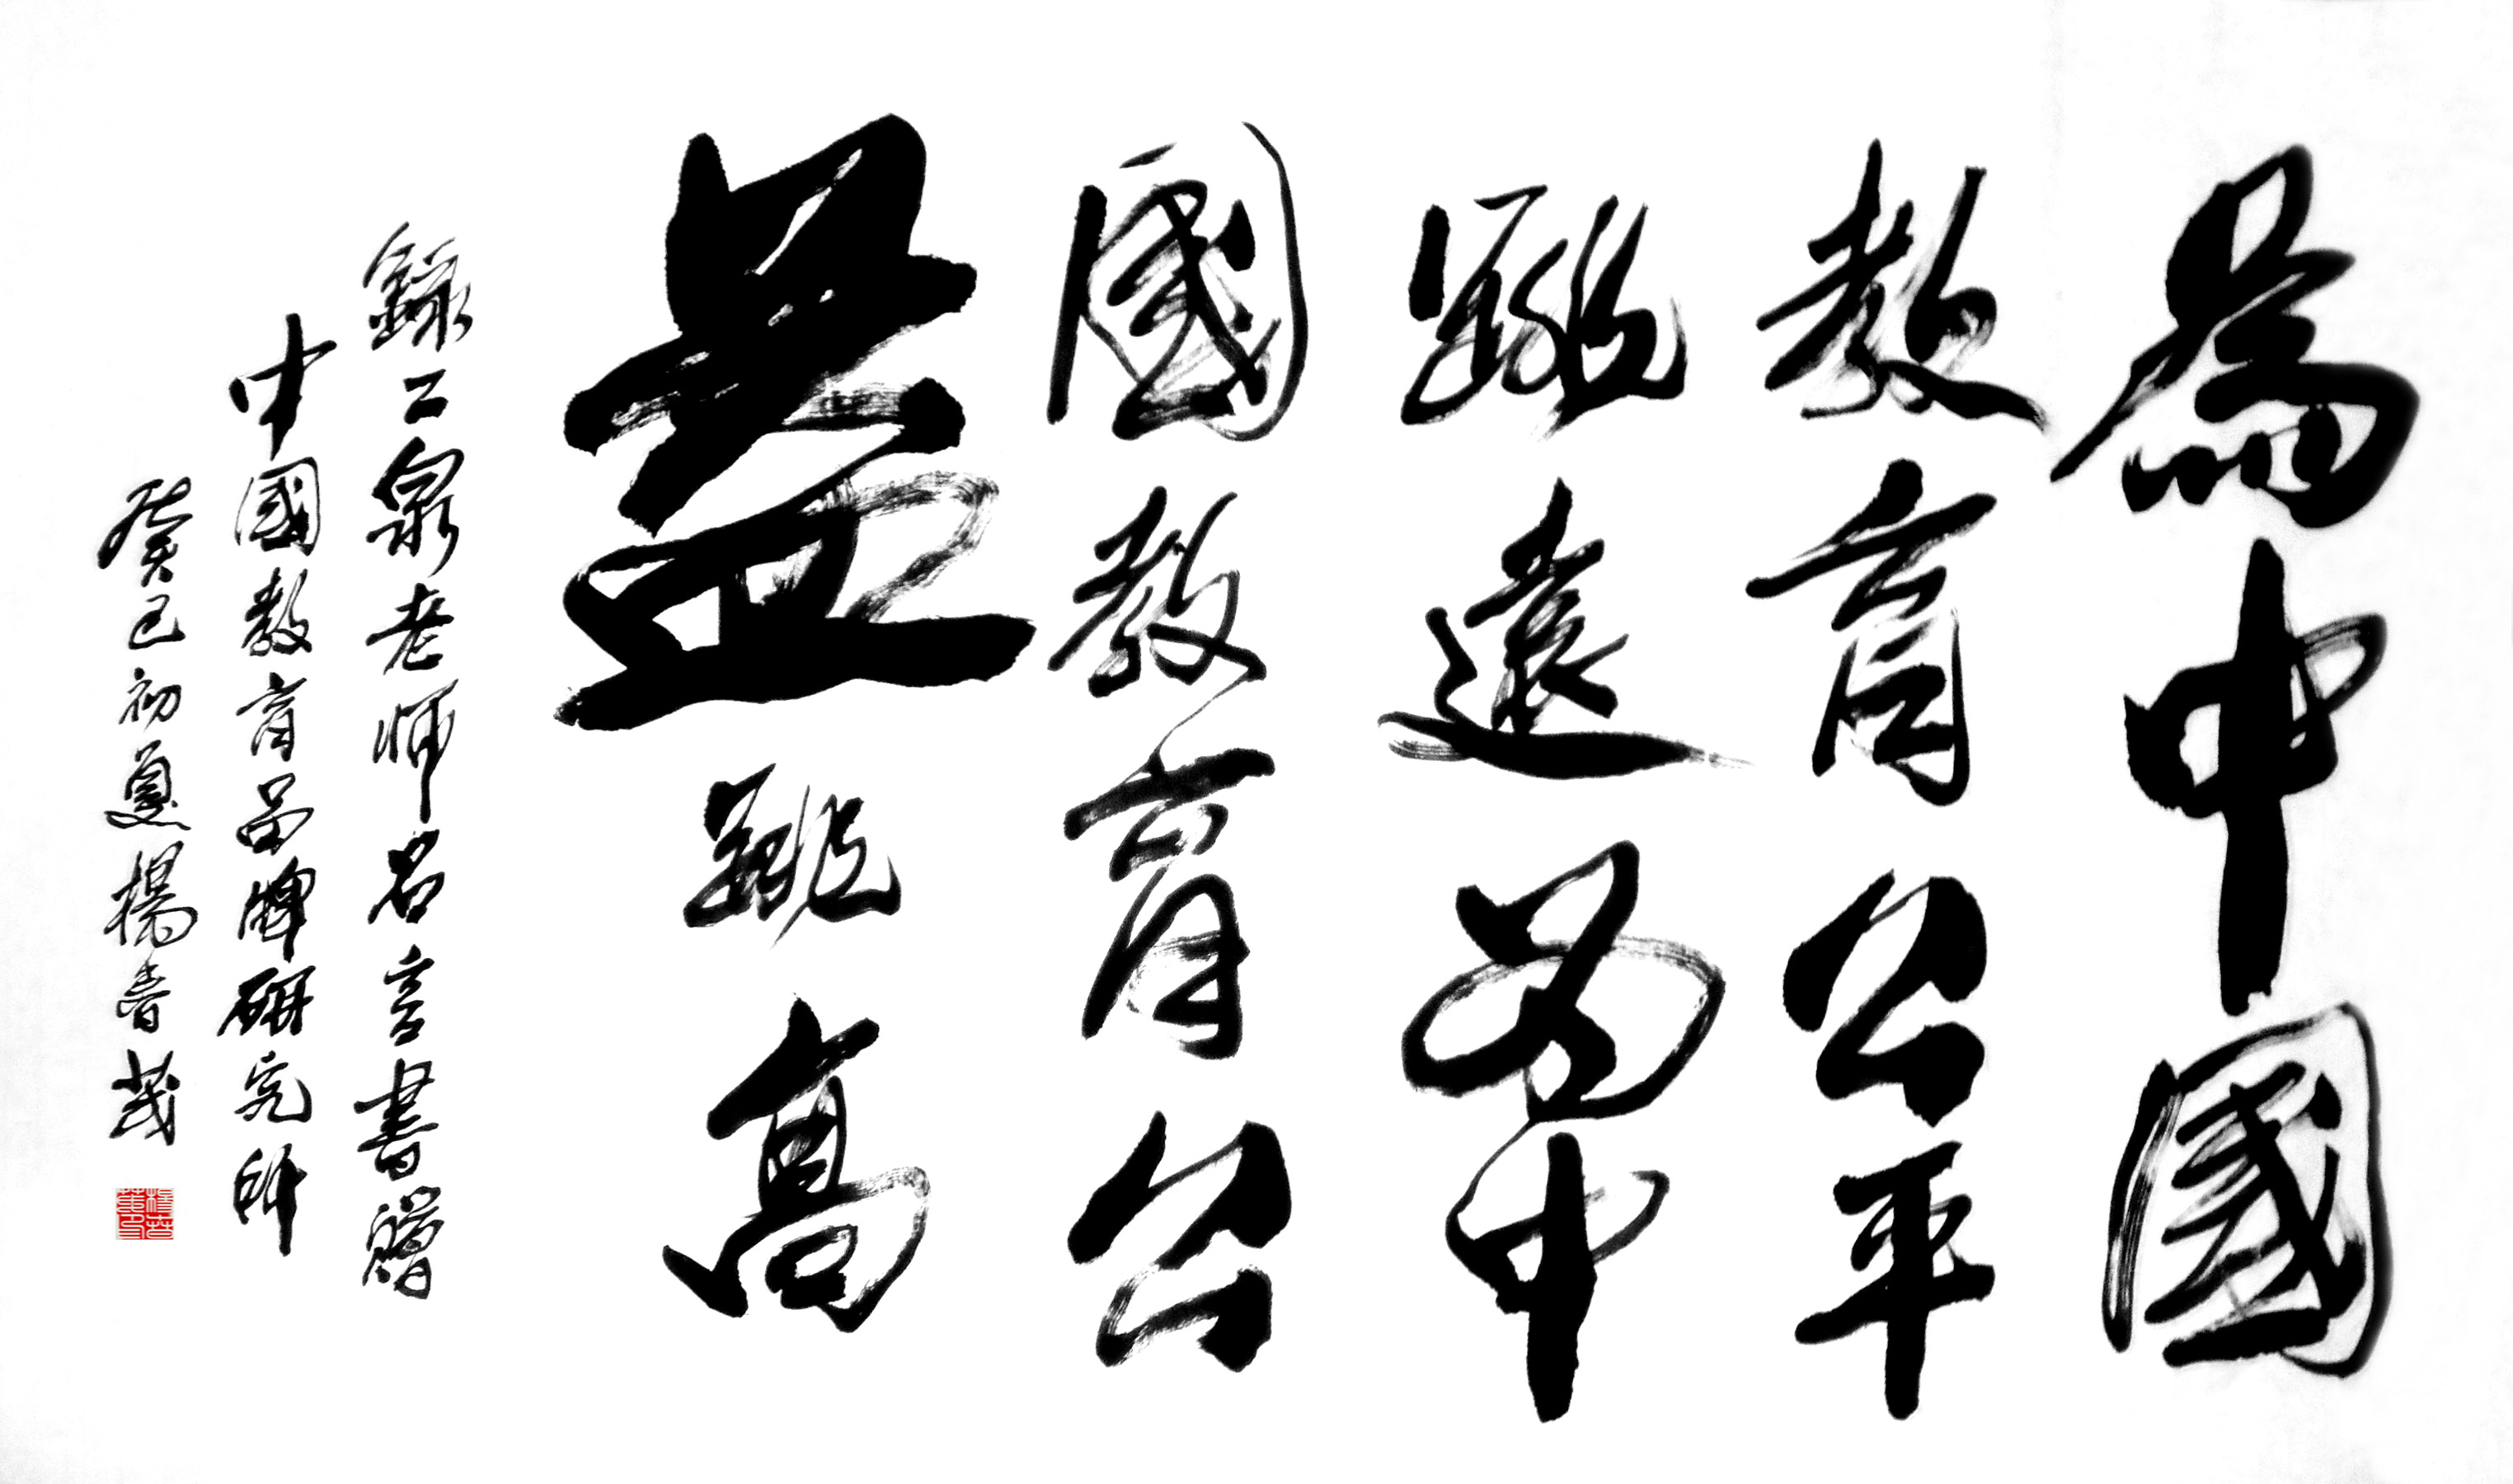 為中國
教育公平
跳遠為中
國教育公
益跳高
錄二泉老師名言書贈
中國教育品牌研究所
癸巳初夏楊春茂